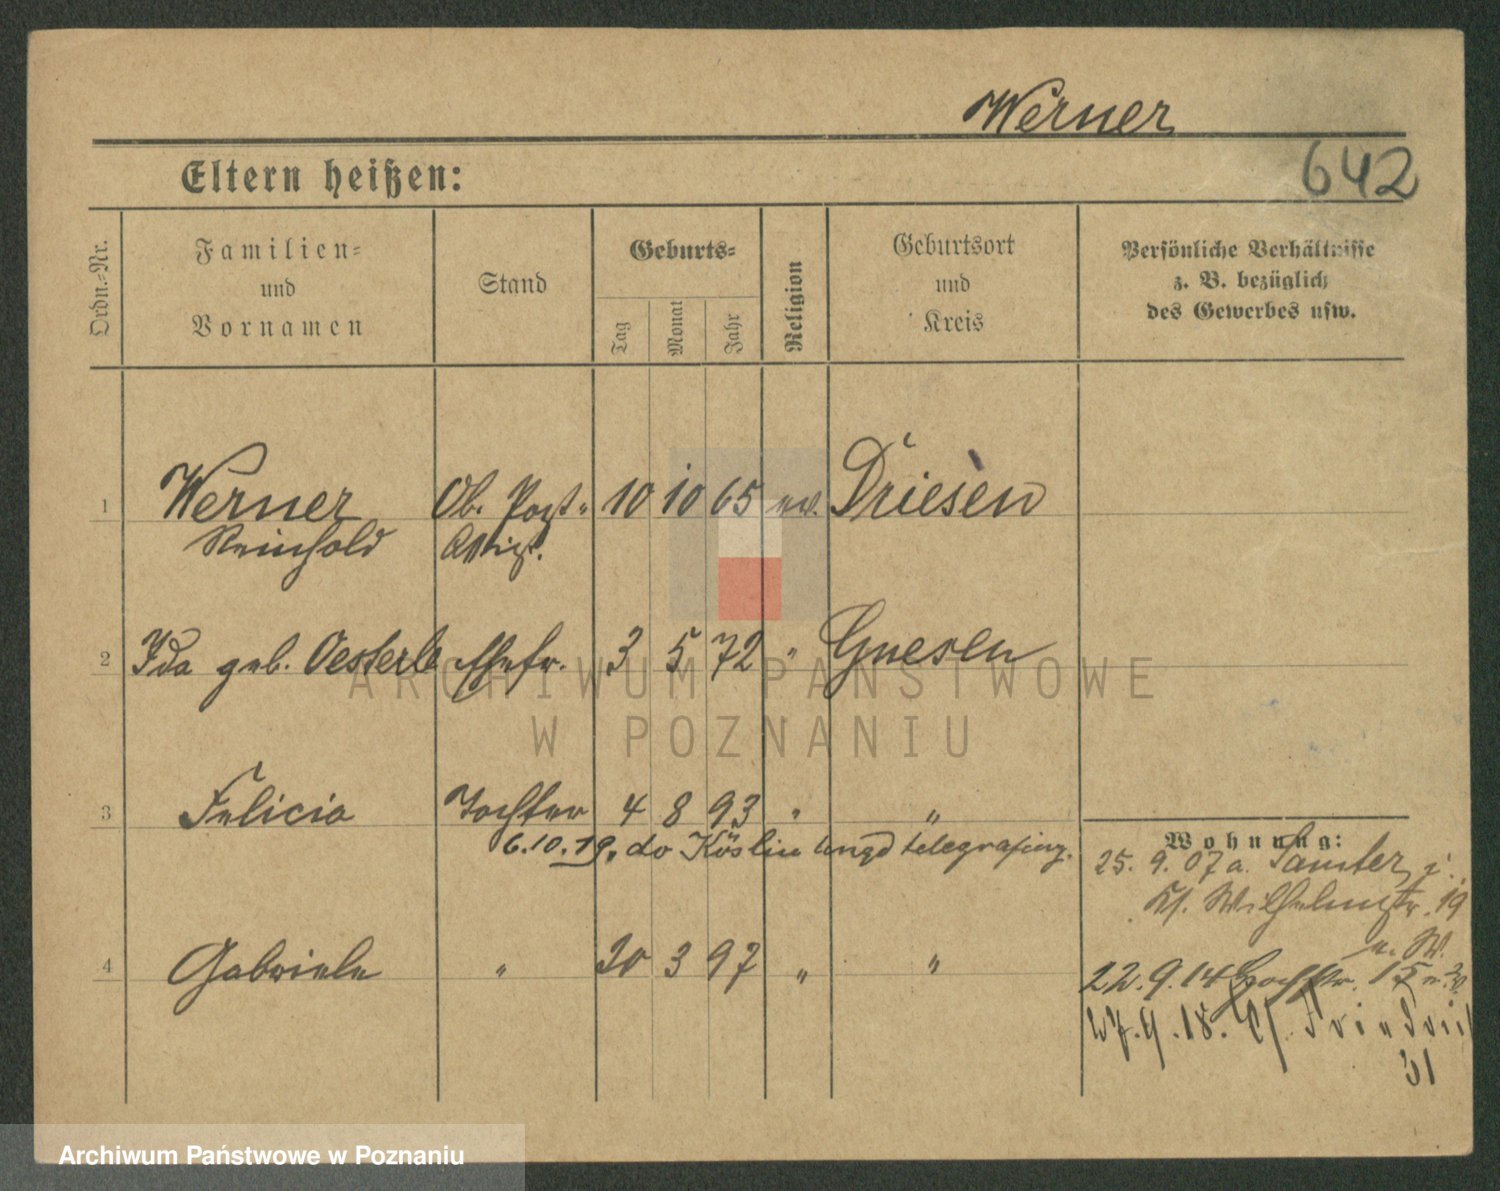 Werner
642
Eltern heißen:
Ordn.-Nr.
Familien-
und
Vornamen
Stand
Geburts-
Tag
Monat
Jahr
Religion
Geburtsort
und
Kreis
Persönliche Verhältnisse
z. B. bezüglich
des Gewerbes usw.
1 Werner Ob. Post- 10 10 65 ev. Driesen
Reinhold Assist.
2 Ida geb. Oesterle Ehefr. 3 5 72 " Gnesen
3 Felicia Tochter 4 8 93 " "
6.10.19. do Köslin
Wohnung:
25. 9. 07 a. Samter
Kl. Wilhelmstr. 19
4 Gabriele " 30 3 97 " "
22. 9. 14 Hochstr. 15
27. 9. 18.
31
ARCHIWUM PAŃSTWOWE
W POZNANIU
Archiwum Państwowe w Poznaniu